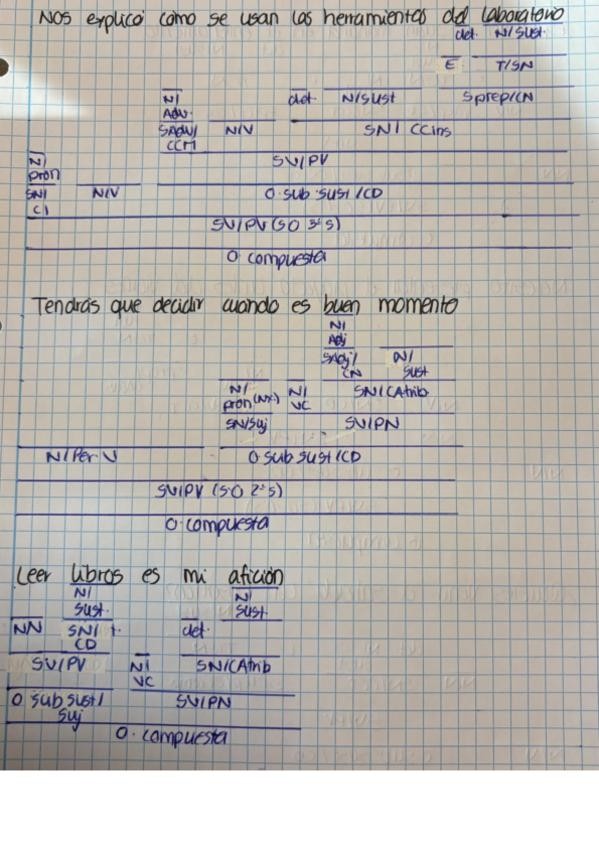 Nos explicó cómo se usan las herramientas del laboratorio
det. N/Sust.
E T/SN
N/ Adv. det. N/Sust Sprep/CN
SAdv/ CCM N/V SN/ CCins
N/ pron SV/PV
SN/ CI N/V O. sub. sust/CD
SV/PV (SO 3ªS)
O. compuesta
Tendrás que decidir cuándo es buen momento
N/ Adj
SAdj/ CN N/ Sust
N/ pron (Nx) N/ VC SN/CAtrib
SN/Suj SV/PN
N/Per V O sub sust/CD
SV/PV (SO 2ªS)
O. compuesta
Leer libros es mi afición
N/ Sust. N/ Sust.
NN SN/ CD det.
SV/PV N/ VC SN/CAtrib
O sub sust/ Suj SV/PN
O. compuesta